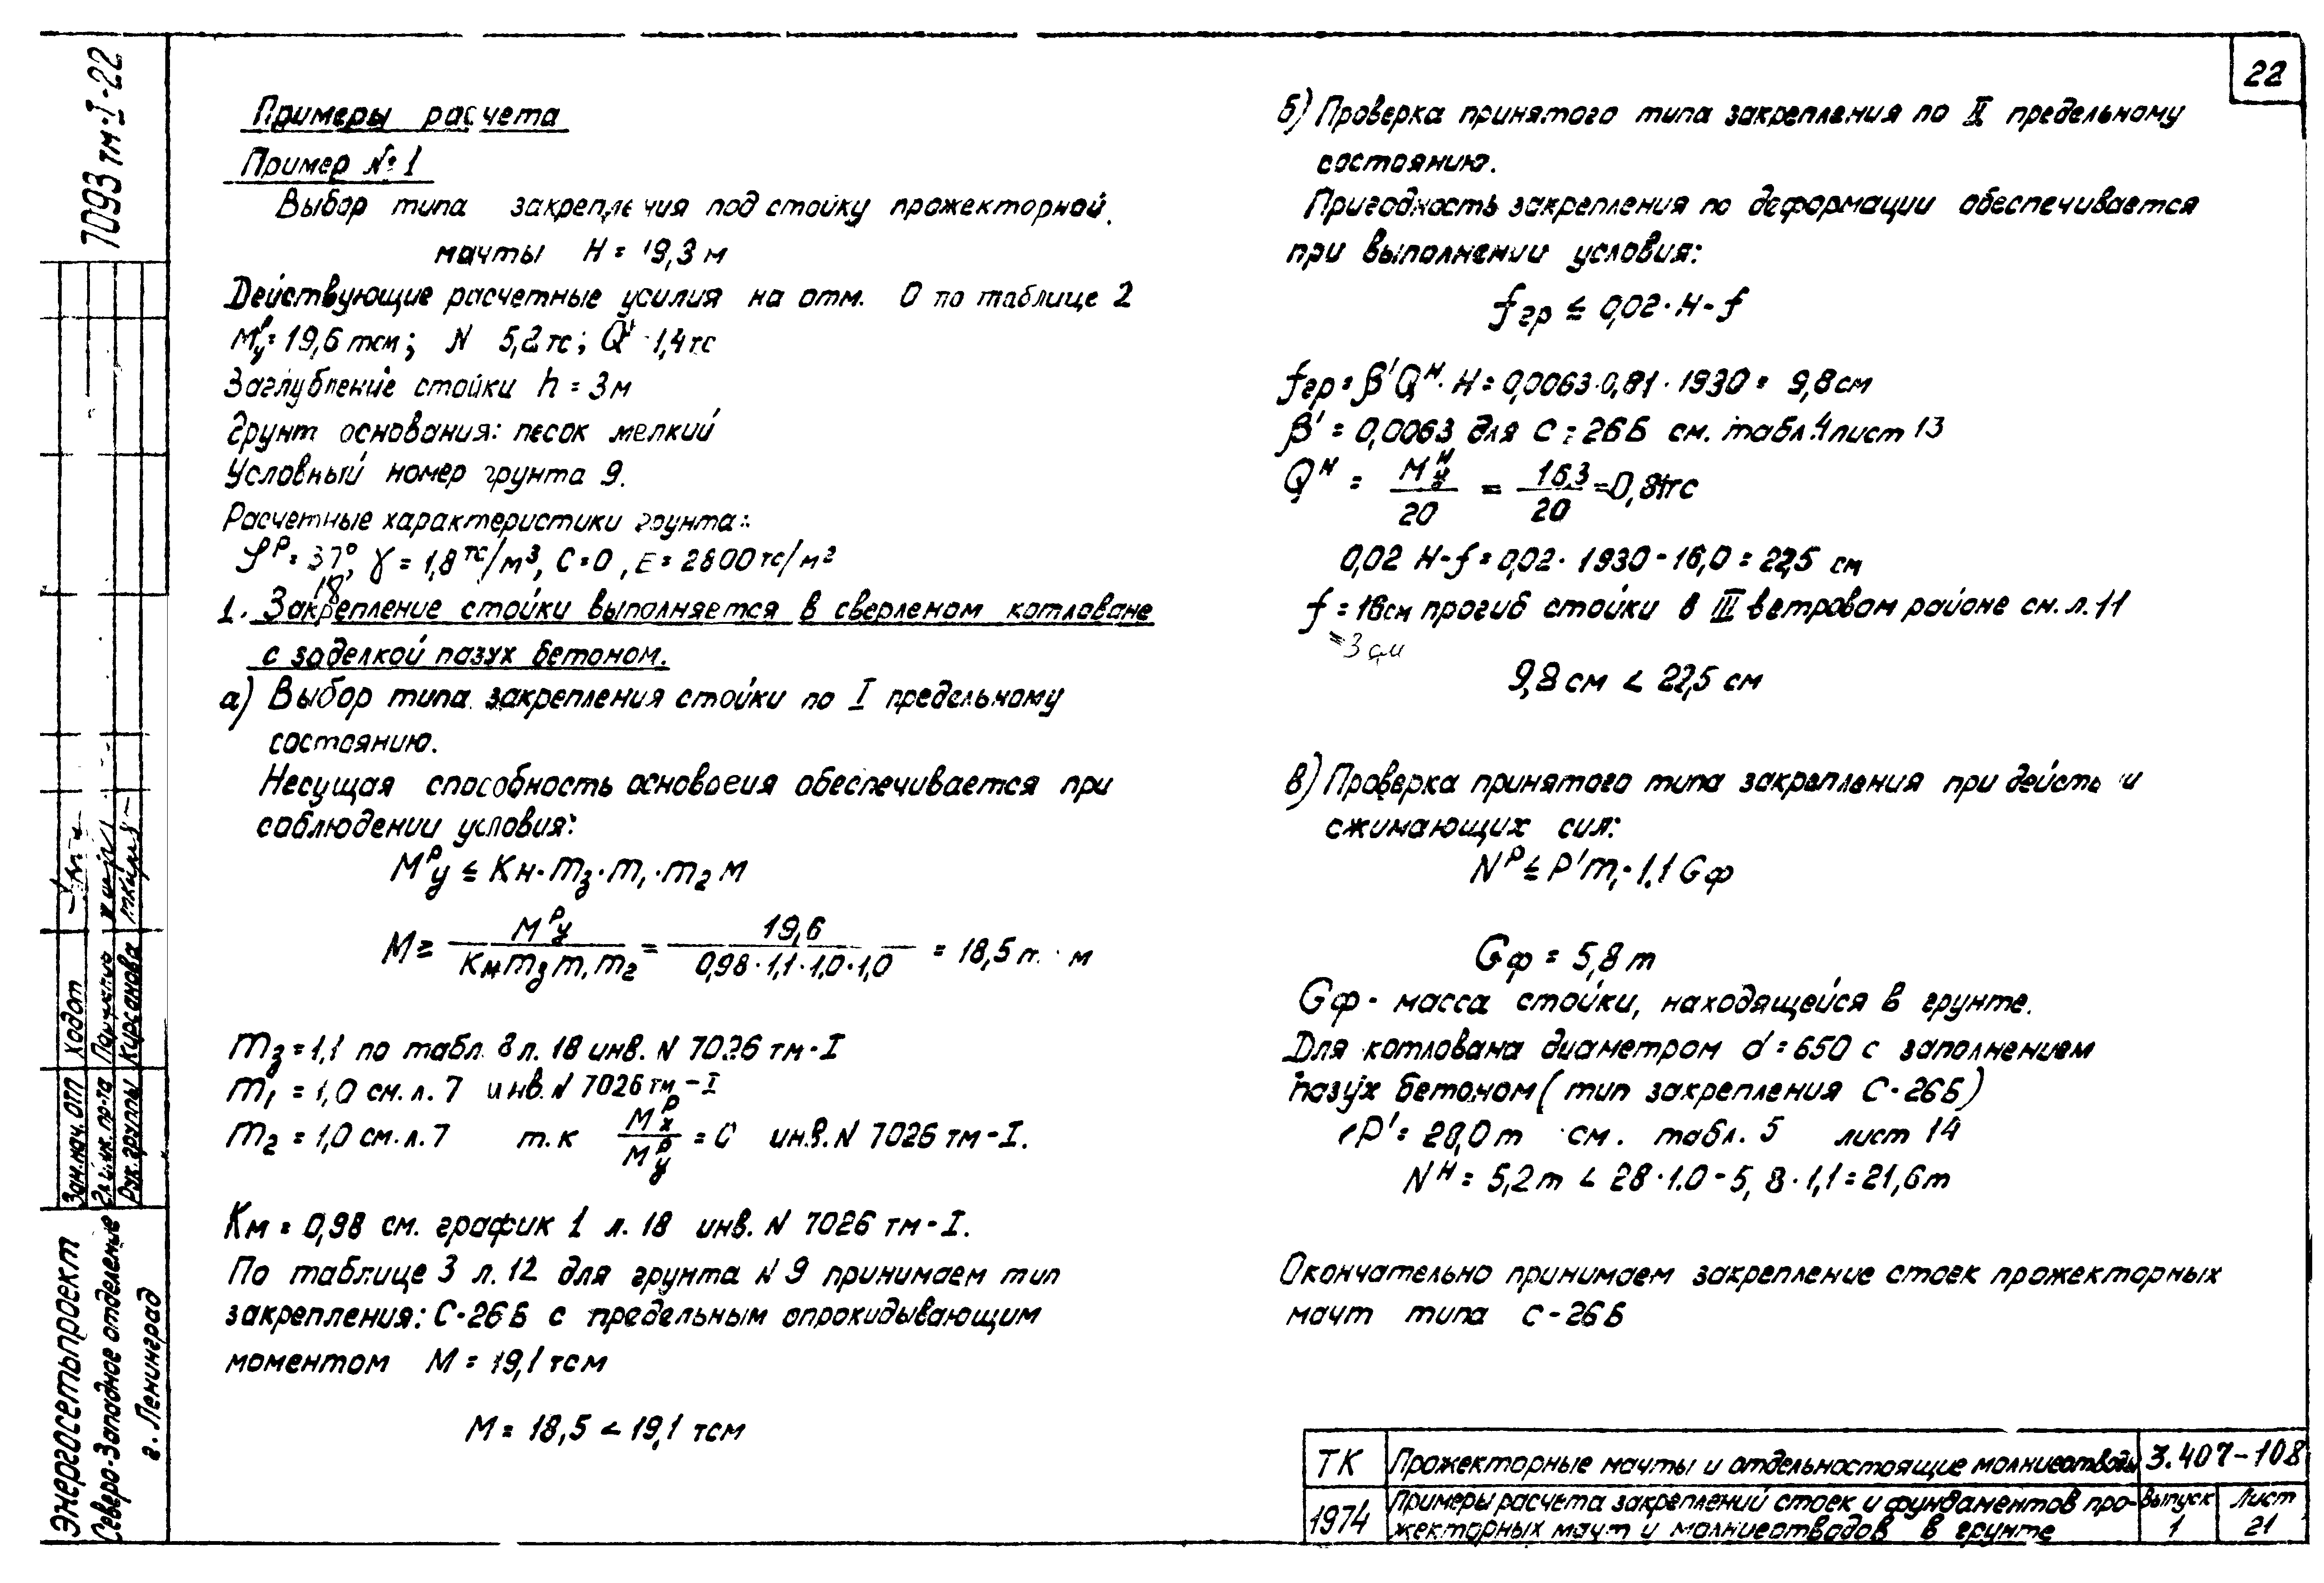 22
Примеры расчета
Пример №1
Выбор типа закрепления под стойку прожекторной
мачты H = 19,3 м
Действующие расчетные усилия на отм. 0 по таблице 2
Mᵖу = 19,6 тсм; N 5,2 тс; Q 1,4 тс
Заглубление стойки h = 3 м
Грунт основания: песок мелкий
Условный номер грунта 9.
Расчетные характеристики грунта:
φᵖ = 37°, γ = 1,8 тс/м³, C = 0, E = 2800 тс/м²
18
1. Закрепление стойки выполняется в сверленом котловане
с заделкой пазух бетоном.
а) Выбор типа закрепления стойки по I предельному
состоянию.
Несущая способность основания обеспечивается при
соблюдении условия:
Mᵖу ≤ Kн·m₃·m₁·m₂ M
M ≥ Mᵖу / Kм m₃ m₁ m₂ = 19,6 / 0,98·1,1·1,0·1,0 = 18,5 т·м
m₃ = 1,1 по табл. 8 л. 18 инв. N 7026 тм-I
m₁ = 1,0 см. л. 7 инв. N 7026 тм-I
m₂ = 1,0 см. л. 7 т.к Mᵖх / Mᵖу = 0 инв. N 7026 тм-I.
Kм = 0,98 см. график 1 л. 18 инв. N 7026 тм-I.
По таблице 3 л. 12 для грунта N 9 принимаем тип
закрепления: С-26Б с предельным опрокидывающим
моментом M = 19,1 тсм
M = 18,5 < 19,1 тсм
б) Проверка принятого типа закрепления по II предельному
состоянию.
Пригодность закрепления по деформации обеспечивается
при выполнении условия:
fгр ≤ 0,02·H-f
fгр = β'Qᴴ·H = 0,0063·0,81·1930 = 9,8 см
β' = 0,0063 для С-26Б см. табл. 4 лист 13
Qᴴ = Mᴴу / 20 = 16,3 / 20 = 0,81тс
0,02 H-f = 0,02·1930-16,0 = 22,5 см
f = 16см прогиб стойки в III ветровом районе см. л. 11
=3 см
9,8 см < 22,5 см
в) Проверка принятого типа закрепления при действии
сжимающих сил:
Nᵖ ≤ P'm₁·1,1 Gф
Gф = 5,8 т
Gф - масса стойки, находящейся в грунте.
Для котлована диаметром d = 650 с заполнением
пазух бетоном (тип закрепления С-26Б)
P' = 28,0 т см. табл. 5 лист 14
Nᴴ = 5,2 т < 28·1.0-5,8·1,1 = 21,6 т
Окончательно принимаем закрепление стоек прожекторных
мачт типа С-26Б
7093 тм-I-22
Зам. нач. ОТП Ходот
Гл. инж. пр-та
Рук. группы Курсанова
Энергосетьпроект
Северо-Западное отделение
г. Ленинград
ТК Прожекторные мачты и отдельностоящие молниеотводы 3.407-108
1974 Примеры расчета закреплений стоек и фундаментов про-
жекторных мачт и молниеотводов в грунте
Выпуск 1 Лист 21